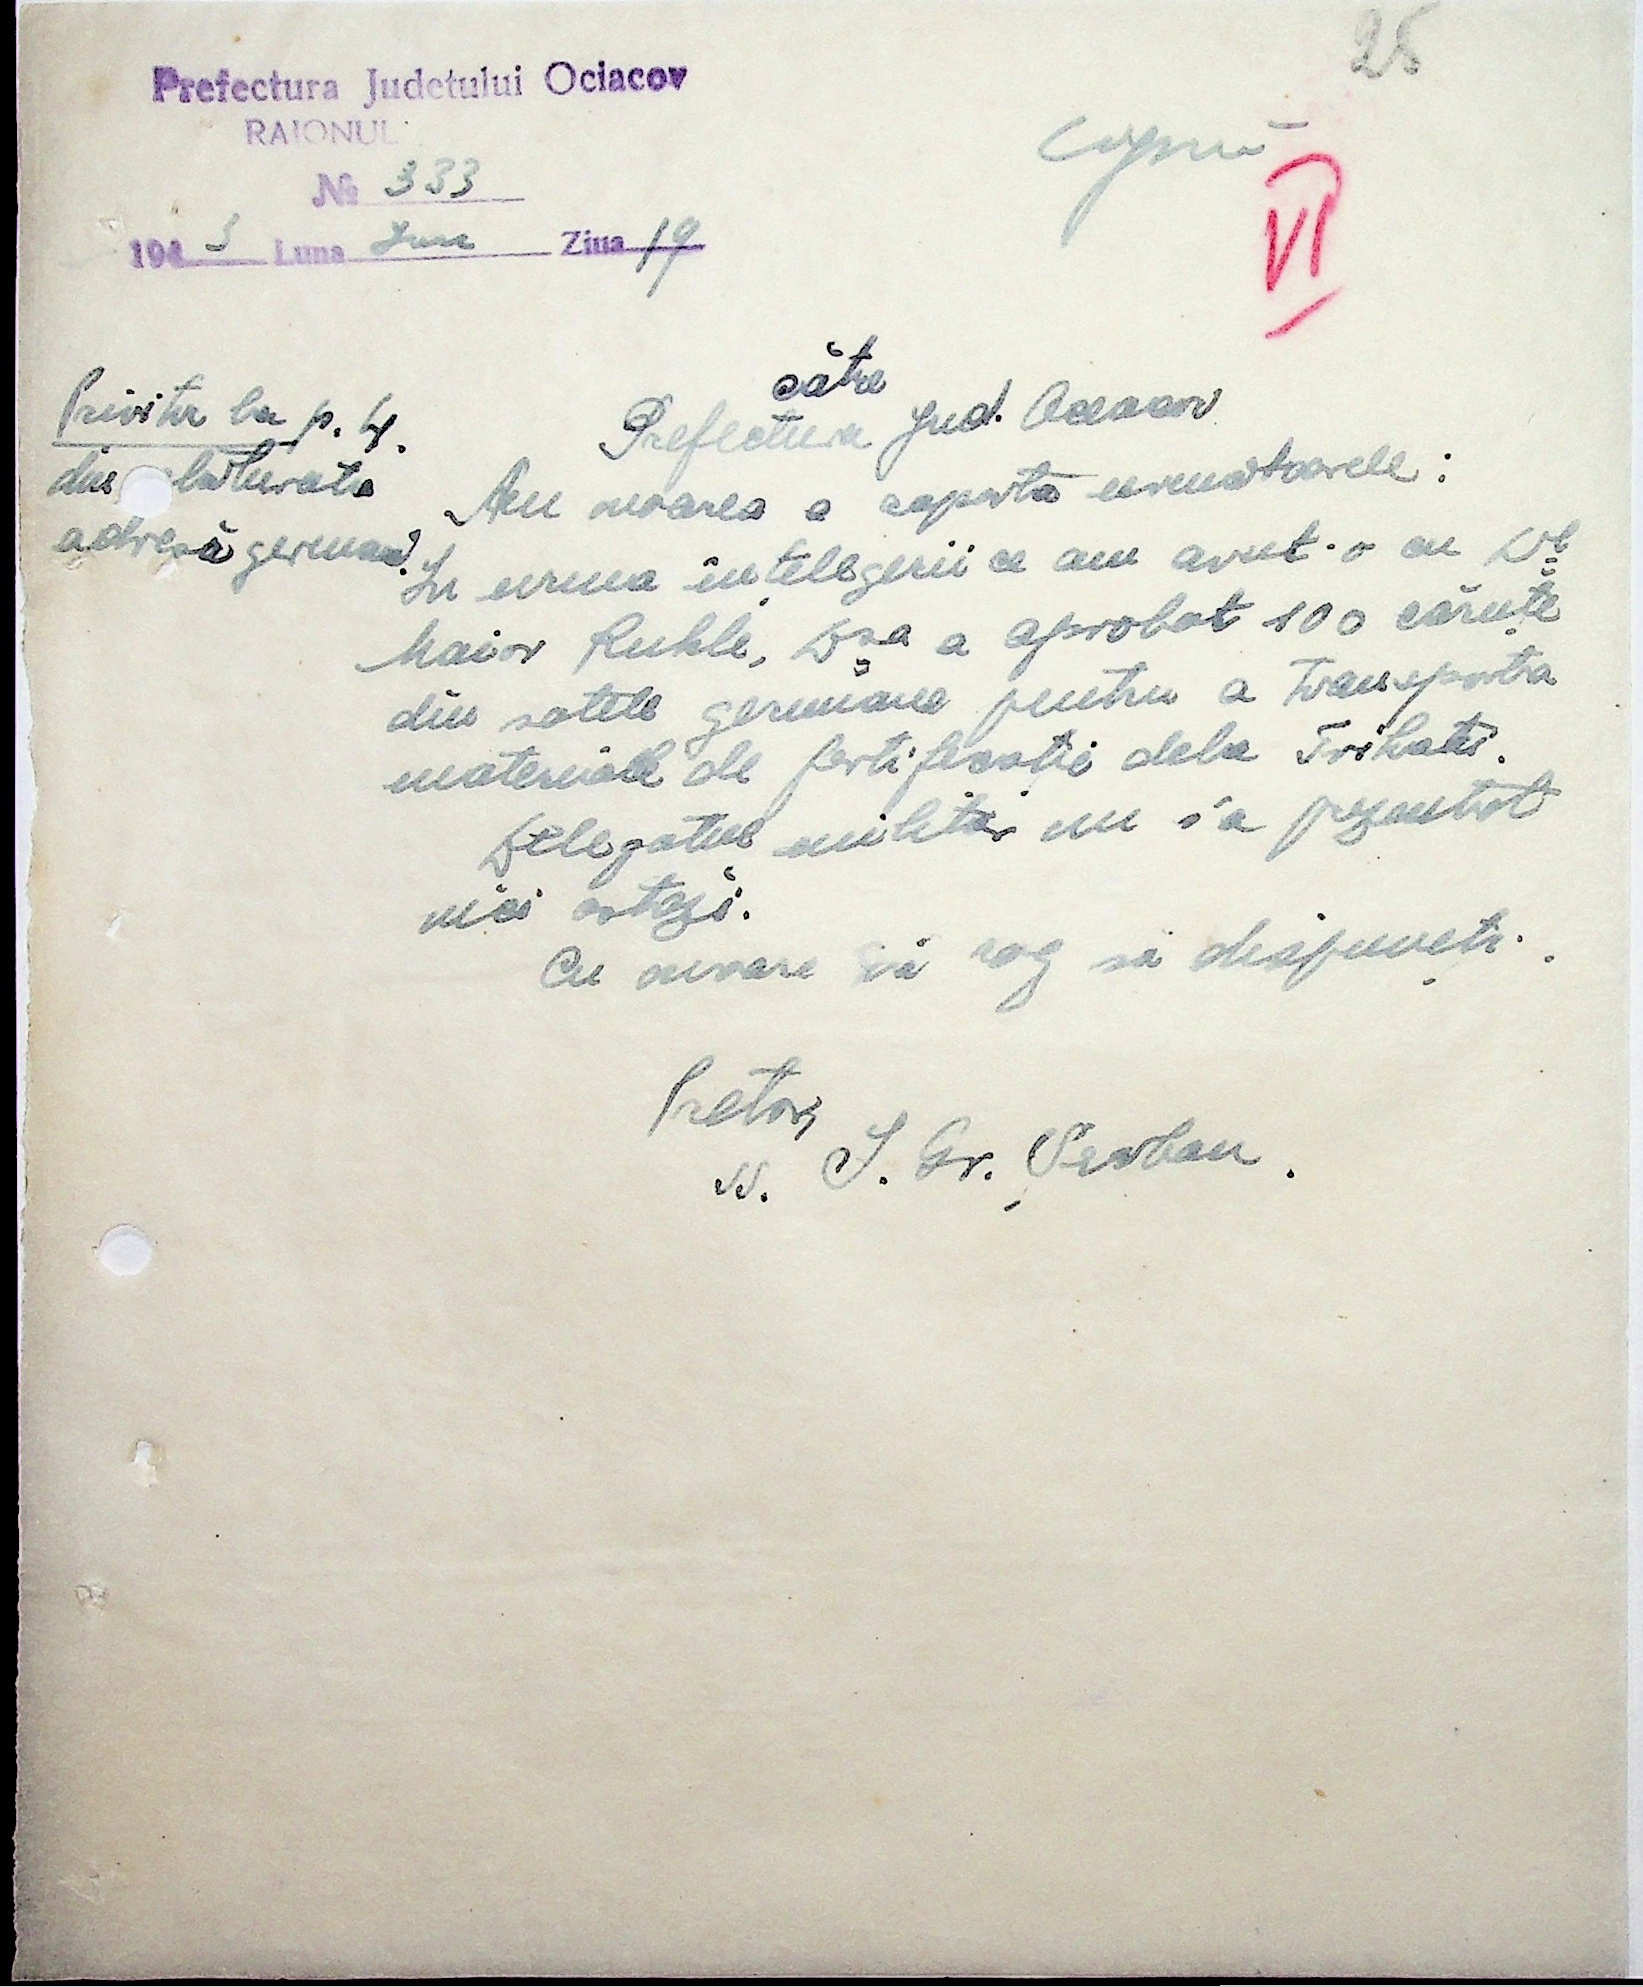 28
Prefectura Județului Ociacov
RAIONUL
№ 333
194 3 Luna Iunie Ziua 19
Copie
VI
către
Prefectura Jud. Oceacov
Privitor la p. 4.
din alăturata
adresă germană.
Am onoarea a raporta următoarele:
În urma înțelegerii ce am avut-o cu Dl
Maior Ruhle, Dsa a aprobat 100 căruțe
din satele germane pentru a transporta
materiale de fortificație dela Trihati.
Delegatul militar nu s'a prezentat
nici astăzi.
Cu onoare vă rog să dispuneți.
Pretor,
ss. I. Gr. Șerban.